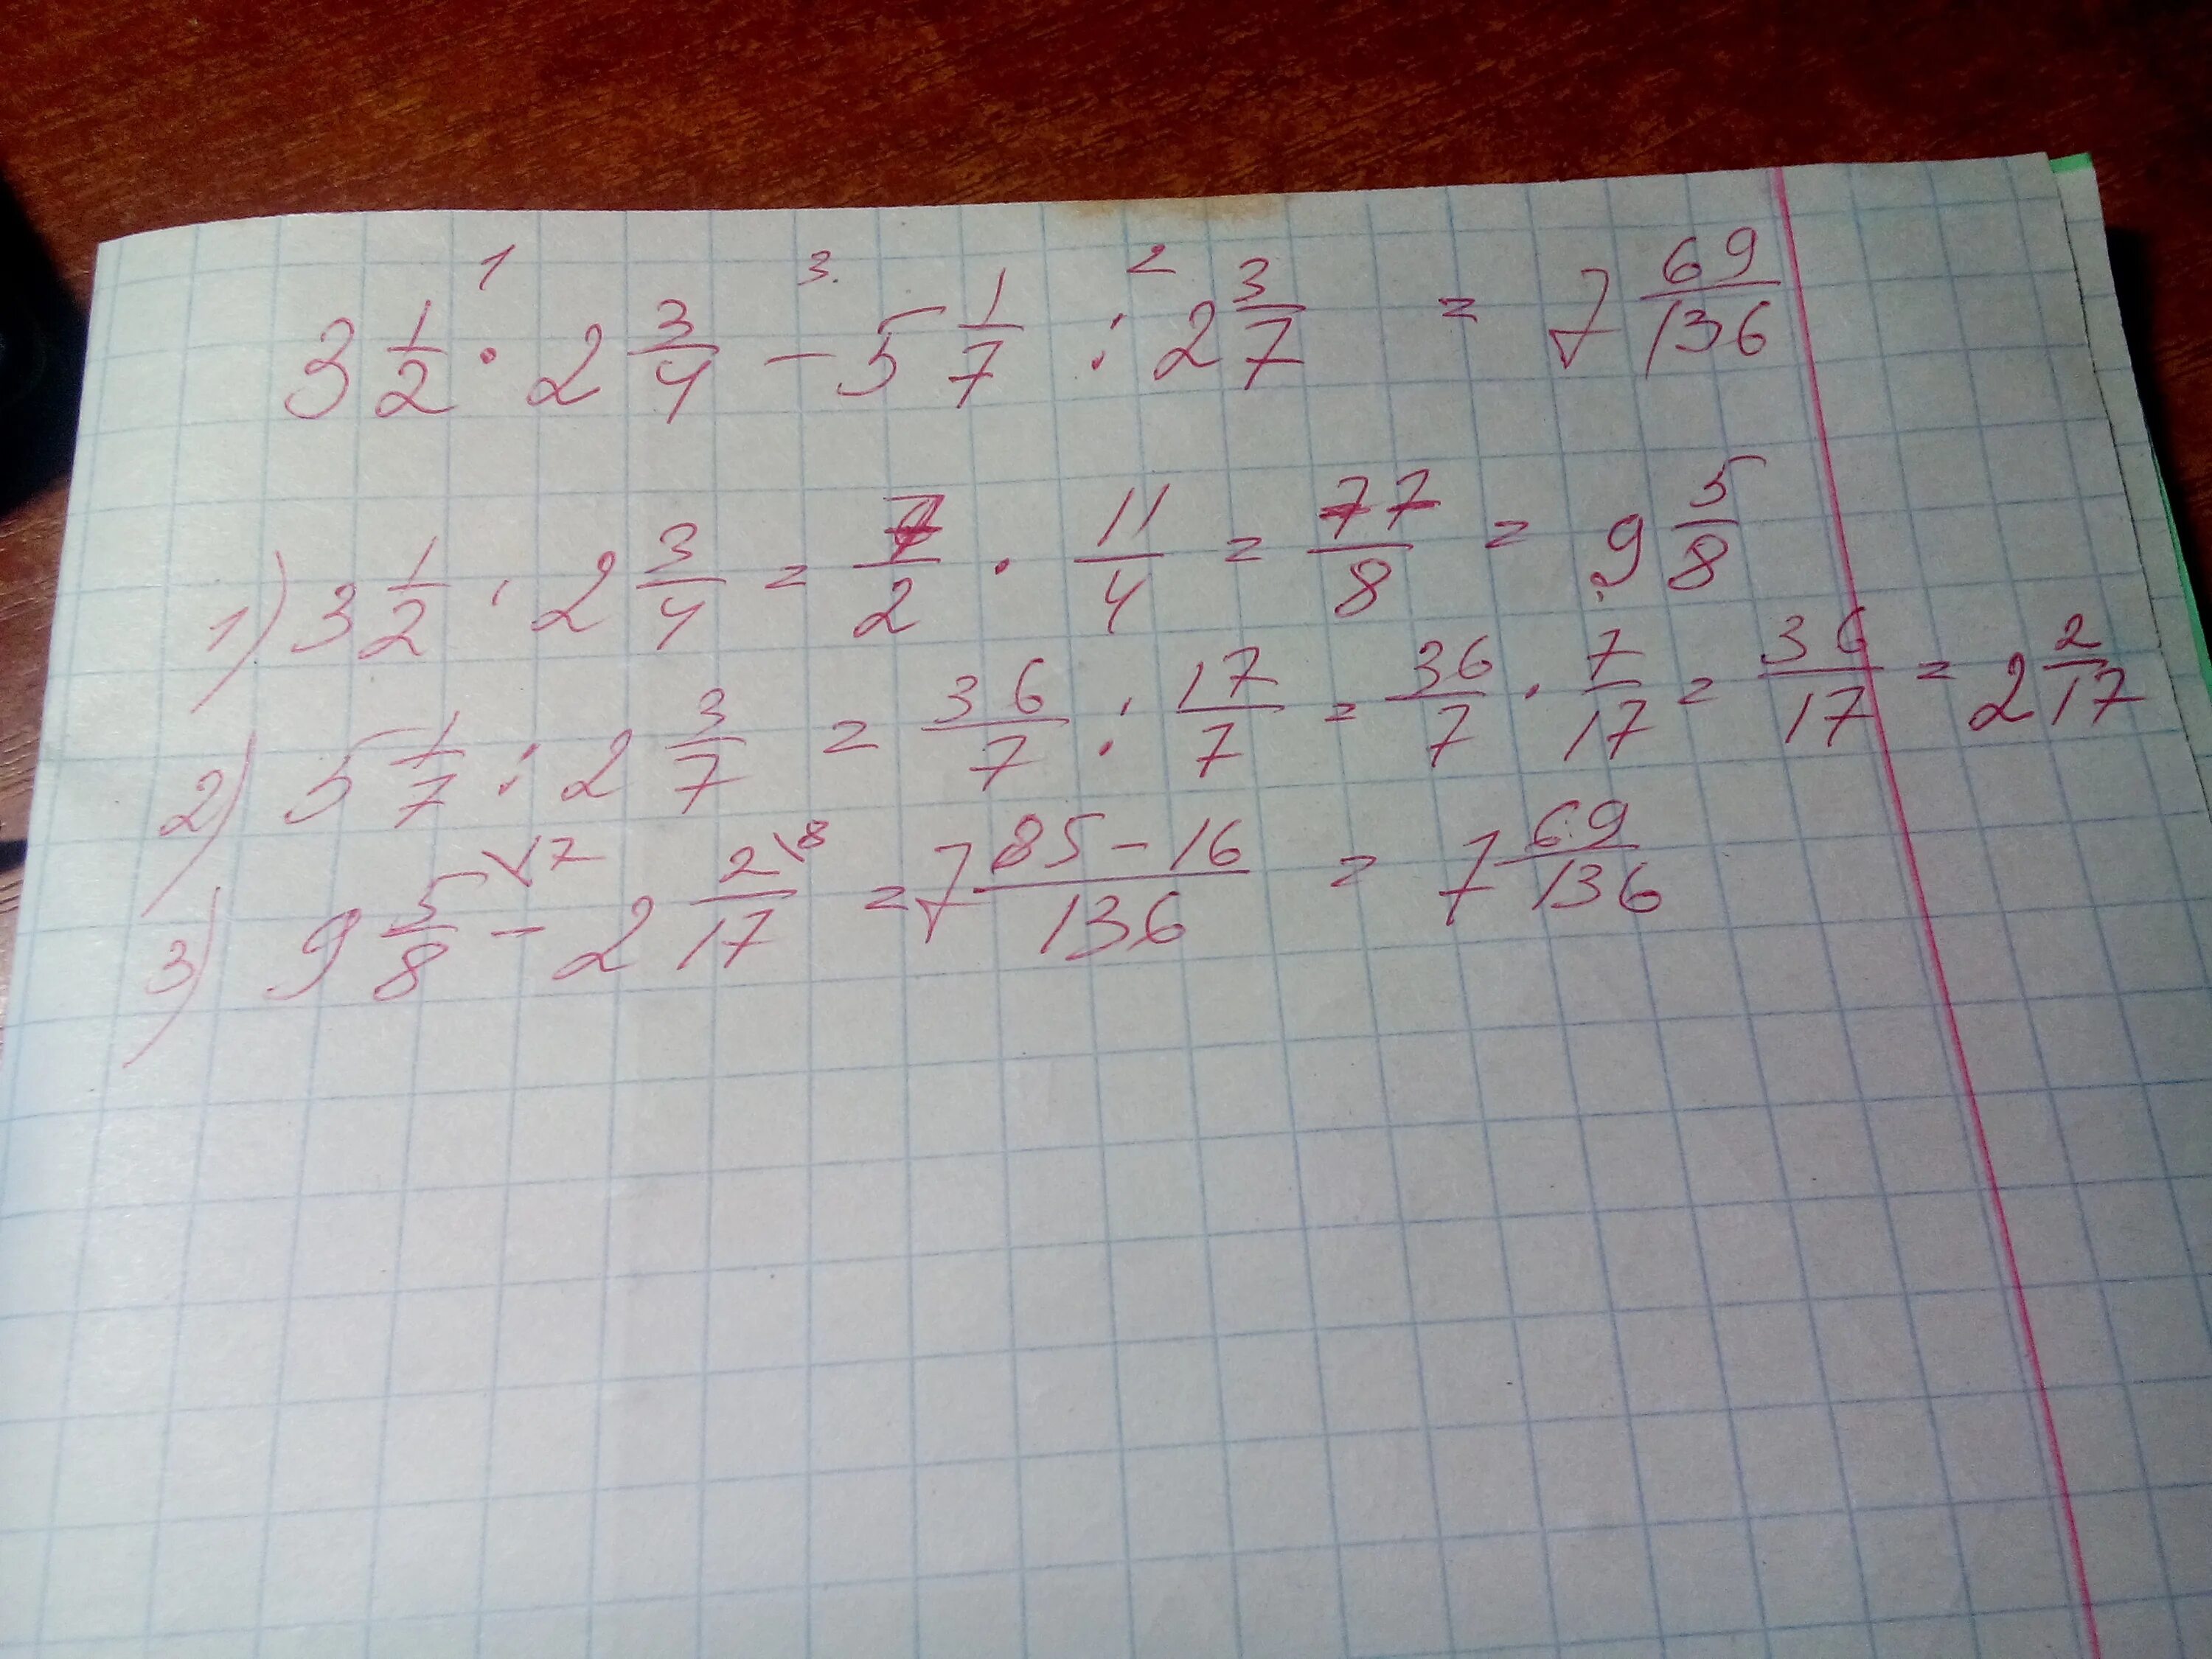 1 3. 2
3 1/2 · 2 3/4 - 5 1/7 : 2 3/7 = 7 69/136
1) 3 1/2 · 2 3/4 = 7/2 · 11/4 = 77/8 = 9 5/8
2) 5 1/7 : 2 3/7 = 36/7 : 17/7 = 36/7 · 7/17 = 36/17 = 2 2/17
3) 9 5/8 \17 - 2 2/17 \8 = 7 85-16/136 = 7 69/136